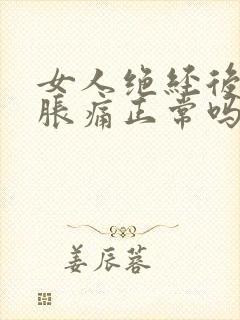 女人绝经後
胀痛正常吗
姜辰蓉